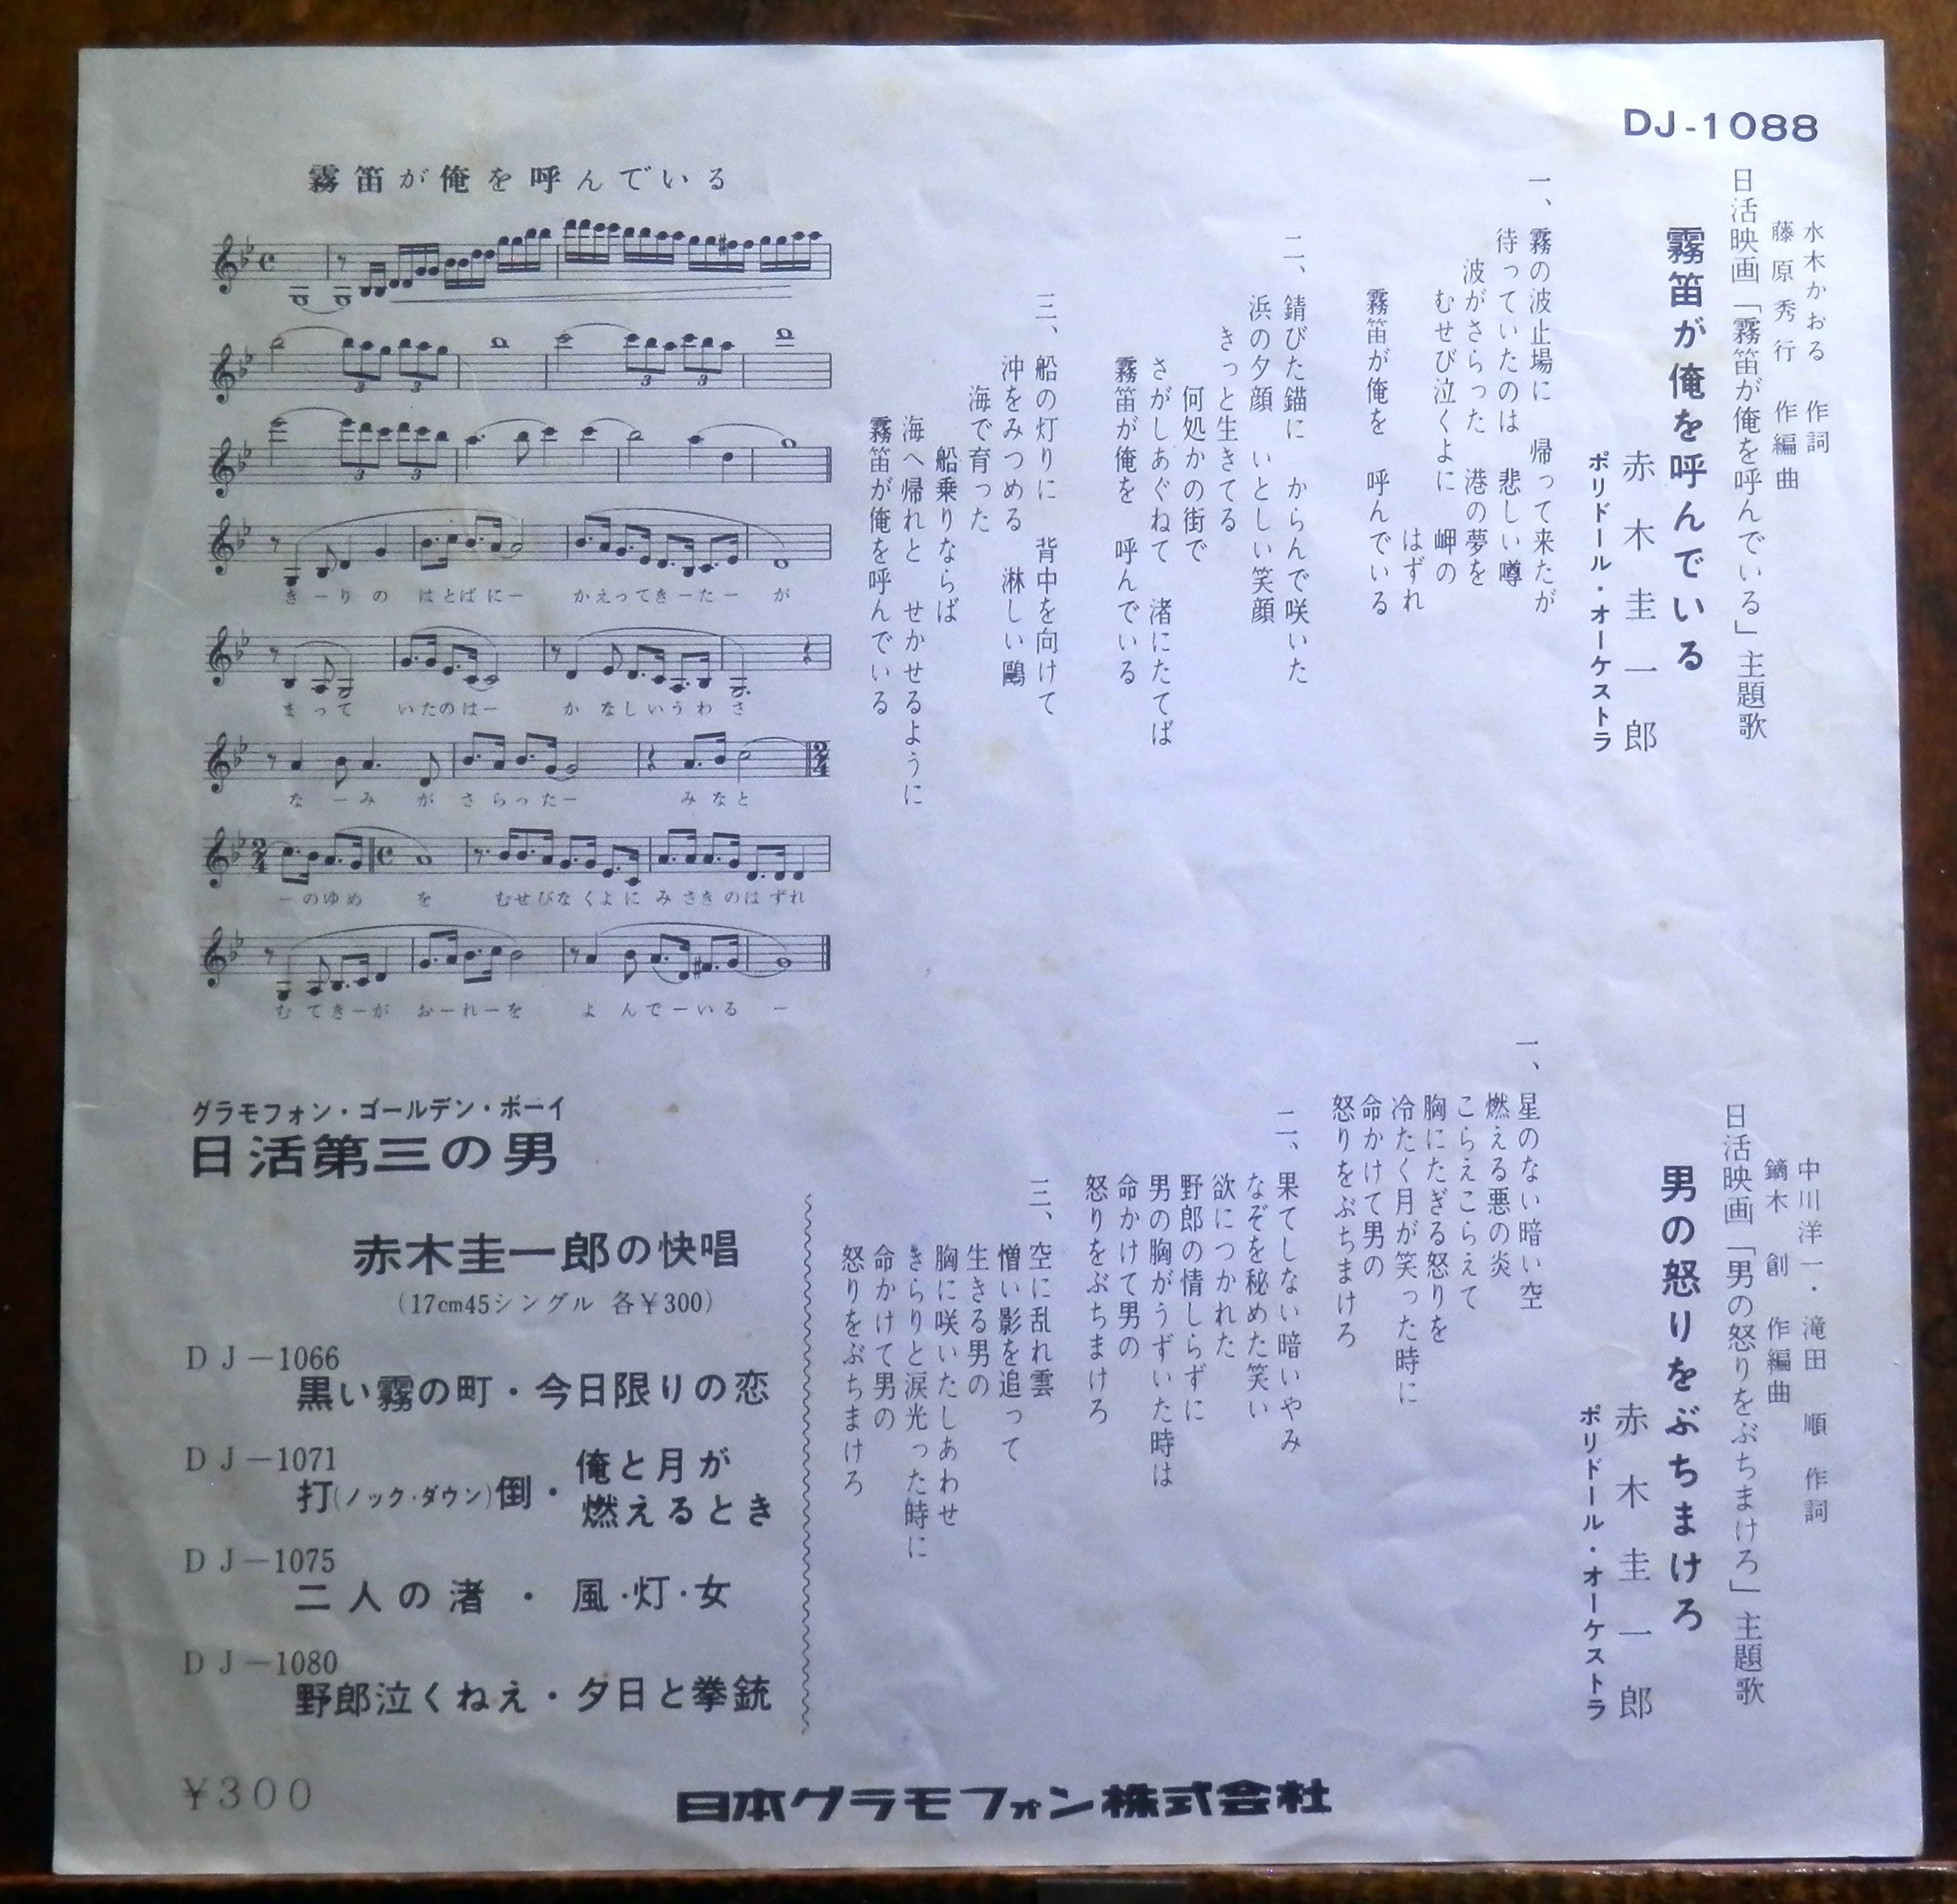 DJ-1088
水木かおる 作詞
藤原秀行 作編曲
日活映画「霧笛が俺を呼んでいる」主題歌
霧笛が俺を呼んでいる
赤木圭一郎
ポリドール・オーケストラ
一、霧の波止場に 帰って来たが
待っていたのは 悲しい噂
波がさらった 港の夢を
むせび泣くよに 岬の
はずれ
霧笛が俺を 呼んでいる
二、錆びた錨に からんで咲いた
浜の夕顔 いとしい笑顔
きっと生きてる
何処かの街で
さがしあぐねて 渚にたてば
霧笛が俺を 呼んでいる
三、船の灯りに 背中を向けて
沖をみつめる 淋しい鷗
海で育った
船乗りならば
海へ帰れと せかせるように
霧笛が俺を呼んでいる
霧笛が俺を呼んでいる
3 3 3 3
3 3
きーりの はとばにー かえってきーたー が
まって いたのはー かなしいうわさ
なーみ が さらったー みなと
2/4
2/4
ーのゆめ を むせびなくよに みさきのはずれ
むてきーが おーれーを よんでーいる ー
中川洋一・滝田 順 作詞
鏑木 創 作編曲
日活映画「男の怒りをぶちまけろ」主題歌
男の怒りをぶちまけろ
赤木圭一郎
ポリドール・オーケストラ
一、星のない暗い空
燃える悪の炎
こらえこらえて
胸にたぎる怒りを
冷たく月が笑った時に
命かけて男の
怒りをぶちまけろ
二、果てしない暗いやみ
なぞを秘めた笑い
欲につかれた
野郎の情しらずに
男の胸がうずいた時は
命かけて男の
怒りをぶちまけろ
三、空に乱れ雲
憎い影を追って
生きる男の
胸に咲いたしあわせ
きらりと涙光った時に
命かけて男の
怒りをぶちまけろ
グラモフォン・ゴールデン・ボーイ
日活第三の男
赤木圭一郎の快唱
(17cm45シングル 各￥300)
DJ－1066
黒い霧の町・今日限りの恋
DJ－1071
打(ノック・ダウン)倒・俺と月が
燃えるとき
DJ－1075
二人の渚・風・灯・女
DJ－1080
野郎泣くねえ・夕日と拳銃
￥300
日本グラモフォン株式会社